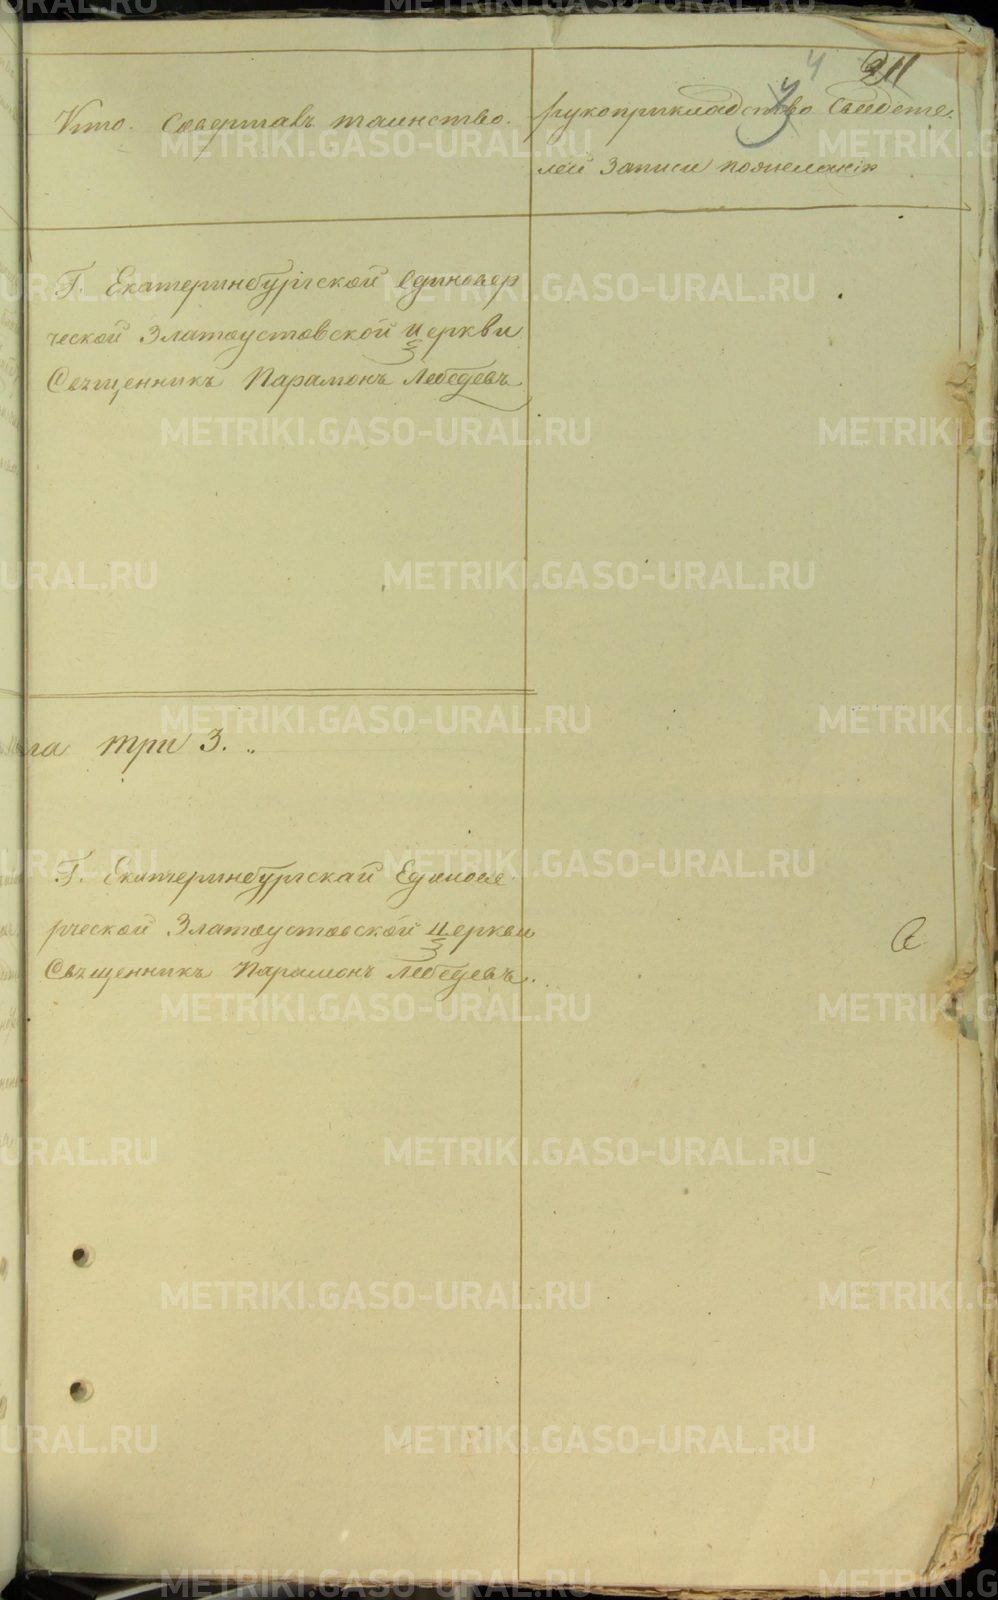 4
211
Кто. Совершалъ таинство.
рукоприкладство Свидете-
лей Записи по желанію
Г. Екатеринбургской Единовер
ческой Златоустовской Церкви
Священникъ Парамонъ Лебедевъ
три 3.
Г. Екатеринбургскай Единове
рческой Златоустовской Церкви
Священникъ Парамонъ Лебедевъ.
METRIKI.GASO-URAL.RU